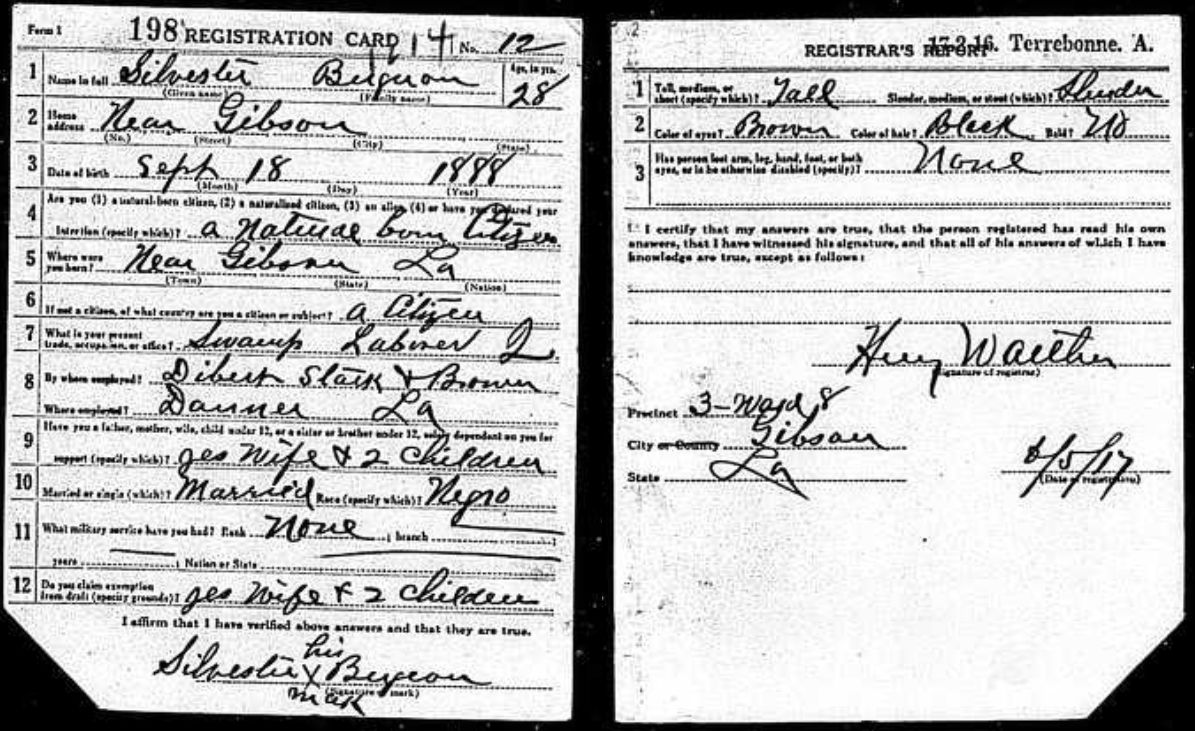 Form 1 198 REGISTRATION CARD 1914 No. 12
1 Name in full Silvester Bergeron Age, in yrs. 28
(Given name) (Family name)
2 Home address Near Gibson
(No.) (Street) (City) (State)
3 Date of birth Sept 18 1888
(Month) (Day) (Year)
4 Are you (1) a natural-born citizen, (2) a naturalized citizen, (3) an alien, (4) or have you declared your
intention (specify which)? a Natural born Citizen
5 Where were you born? Near Gibson La
(Town) (State) (Nation)
6 If not a citizen, of what country are you a citizen or subject? a Citizen
7 What is your present trade, occupation, or office? Swamp Laborer
8 By whom employed? Dibert Stark & Brown
Where employed? Donner La
9 Have you a father, mother, wife, child under 12, or a sister or brother under 12, solely dependent on you for
support (specify which)? yes Wife & 2 Children
10 Married or single (which)? Married Race (specify which)? Negro
11 What military service have you had? Rank None ; branch ;
years ; Nation or State
12 Do you claim exemption from draft (specify grounds)? yes Wife & 2 Children
I affirm that I have verified above answers and that they are true.
his
Silvester X Bergeron
(Signature or mark)
mark
REGISTRAR'S REPORT 17-2-16. Terrebonne. A.
1 Tall, medium, or short (specify which)? Tall Slender, medium, or stout (which)? Slender
2 Color of eyes? Brown Color of hair? Black Bald? No
3 Has person lost arm, leg, hand, foot, or both eyes, or is he otherwise disabled (specify)? None
I certify that my answers are true, that the person registered has read his own
answers, that I have witnessed his signature, and that all of his answers of which I have
knowledge are true, except as follows:
Henry Walther
(Signature of registrar)
Precinct 3-Ward 8
City or County Gibson
State La
6/5/17
(Date of registration)